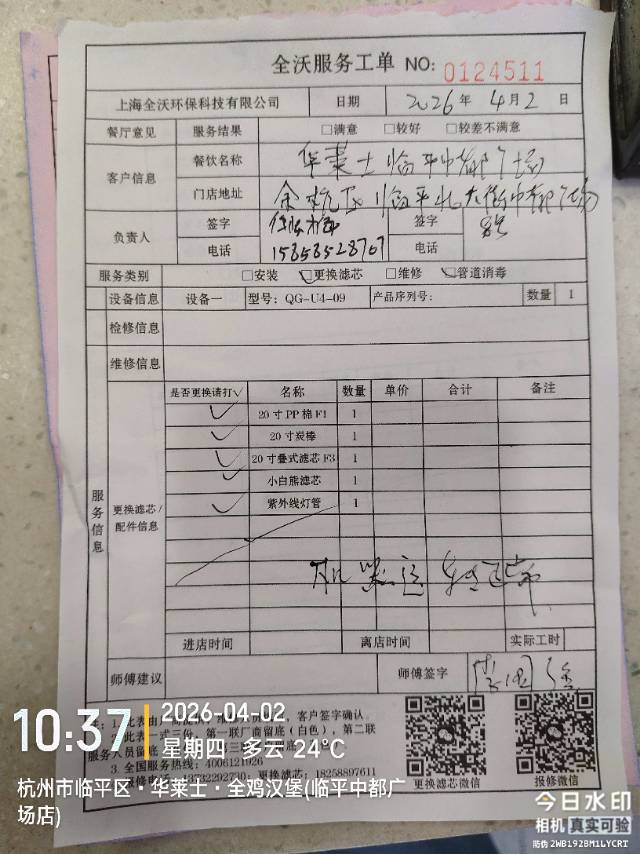 全沃服务工单 NO: 0124511
上海全沃环保科技有限公司 日期 2026年 4月 2 日
餐厅意见 服务结果 □满意 □较好 □较差不满意
客户信息 餐饮名称 华莱士临平中都广场
门店地址 余杭区临平北大街中都广场
负责人 签字 签字
电话 15858528707 电话
服务类别 □安装 ☑更换滤芯 □维修 ☑管道消毒
设备信息 设备一 型号: QG-U4-09 产品序列号: 数量 1
检修信息
维修信息
服务信息 更换滤芯/配件信息
是否更换请打√ 名称 数量 单价 合计 备注
√ 20寸PP棉F1 1
√ 20寸炭棒 1
√ 20寸叠式滤芯F3 1
√ 小白熊滤芯 1
√ 紫外线灯管 1
机器运转正常
进店时间 离店时间 实际工时
师傅建议 师傅签字
客户签字确认。
此表一式三份。第一联厂商留底(白色),第二联
服务人员留底
3. 全国服务热线: 4006121926
更换滤芯: 18258897611
更换滤芯微信 报修微信
10:37
2026-04-02
星期四 多云 24℃
杭州市临平区·华莱士·全鸡汉堡(临平中都广
场店)
今日水印
相机 真实可验
防伪 2WB192BM1LYCRT